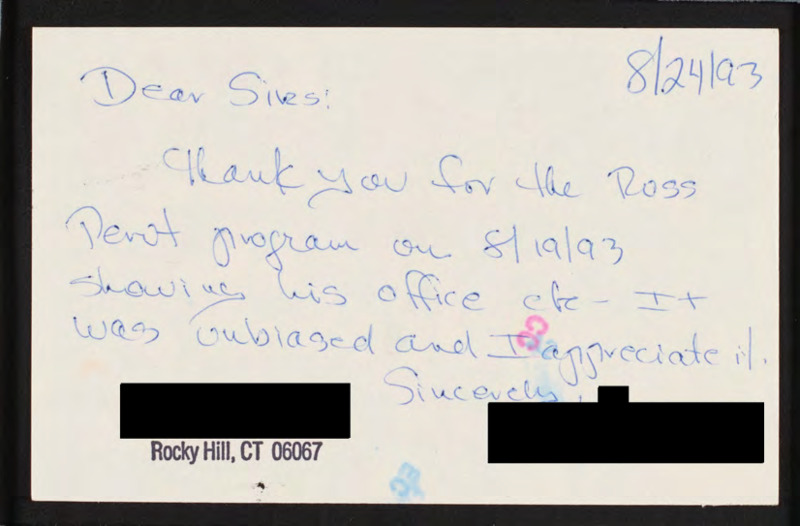 8/24/93
Dear Sirs:
Thank you for the Ross
Perot program on 8/19/93
showing his office etc - It
was unbiased and I appreciate it.
Sincerely,
Rocky Hill, CT 06067